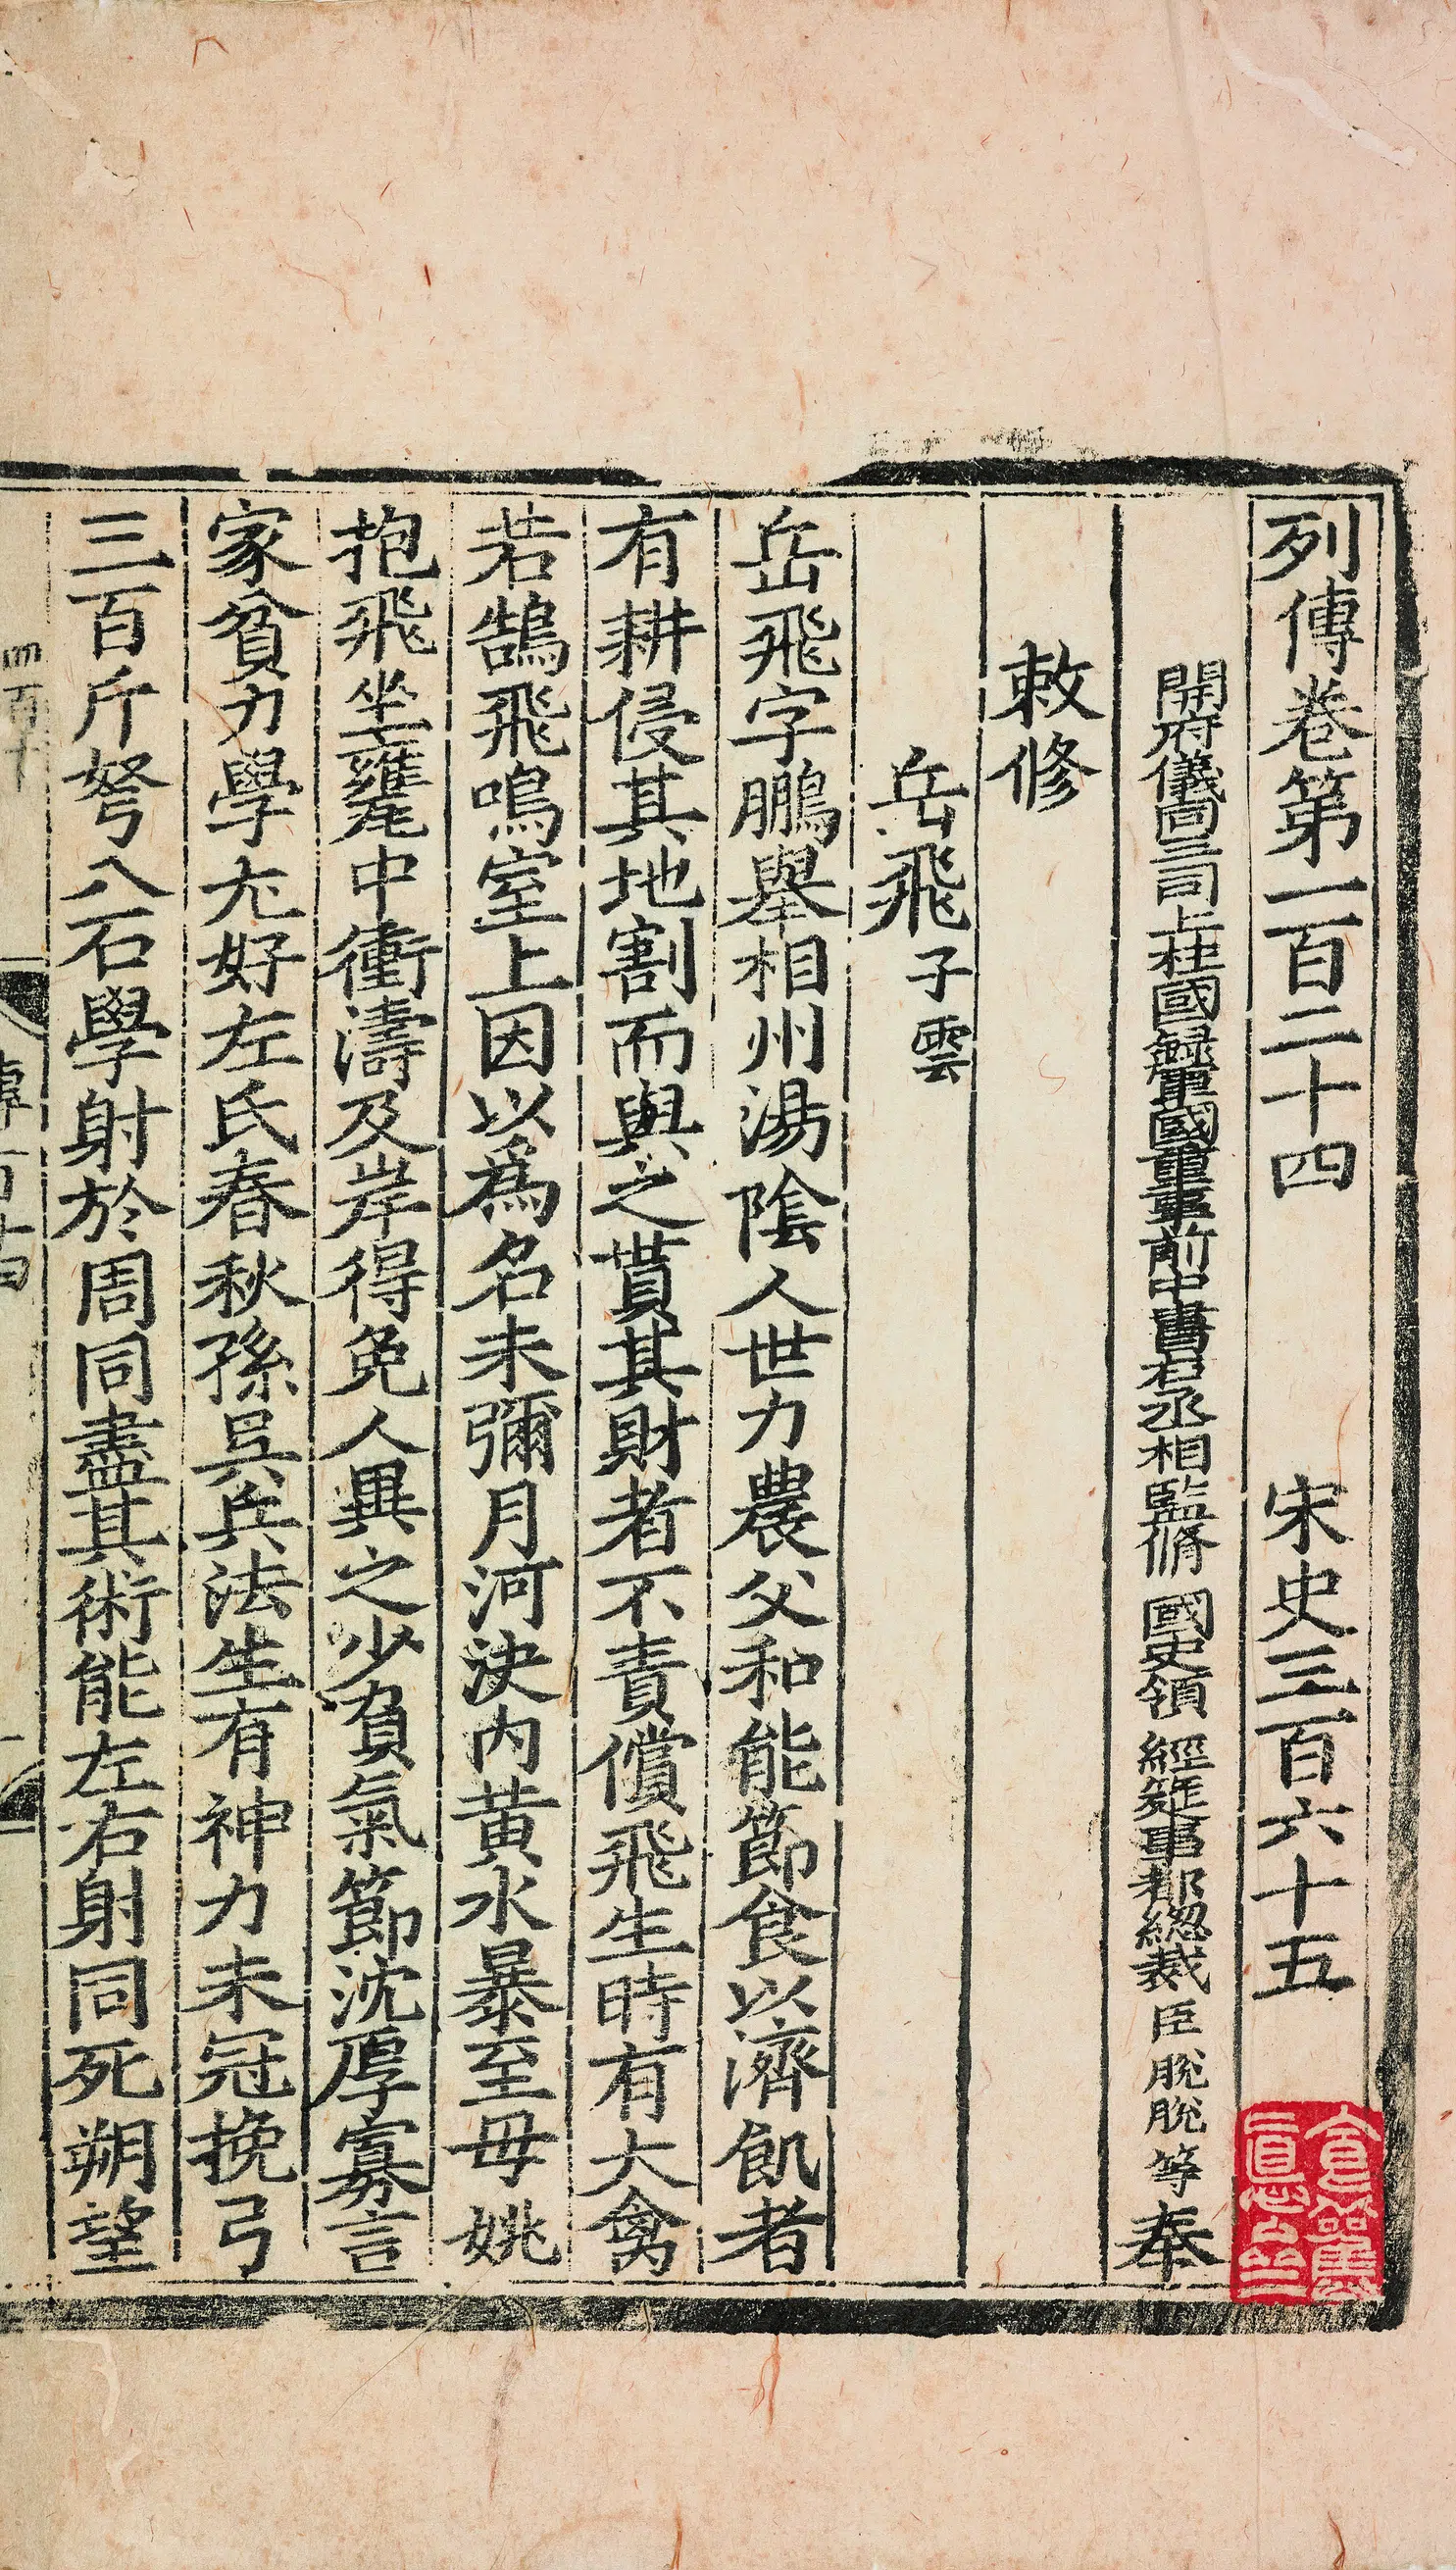 列傳卷第一百二十四 宋史三百六十五
開府儀同三司上柱國録軍國重事前中書右丞相監脩 國史領 經筵事都緫裁臣脫脫等奉
敕修
岳飛 子雲
岳飛字鵬舉相州湯陰人世力農父和能節食以濟飢者
有耕侵其地割而與之貰其財者不責償飛生時有大禽
若鵠飛鳴室上因以爲名未彌月河決内黄水暴至毋姚
抱飛坐甕中衝濤及岸得免人異之少負氣節沈厚寡言
家貧力學尤好左氏春秋孫吳兵法生有神力未冠挽弓
三百斤弩八石學射於周同盡其術能左右射同死朔望
四百十